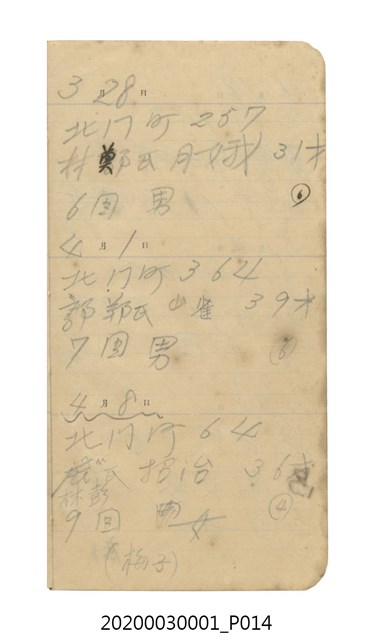 3月28日
北门町257
林鄭氏月娥 31才
6回 男 ⑥
4月1日
北门町364
郭鄭氏山雀 39才
7回男 ⑥
4月8日
北门町64
氏招治 36才
林彭
9回 女 ④
(梅子)
20200030001_P014